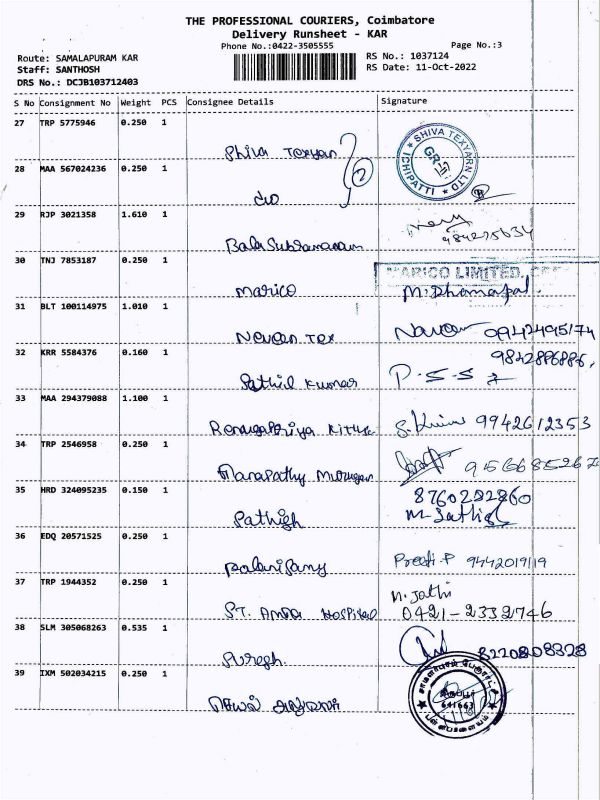 THE PROFESSIONAL COURIERS, Coimbatore
Delivery Runsheet - KAR
Phone No.:0422-3505555
Page No.:3
Route: SAMALAPURAM KAR
Staff: SANTHOSH
DRS No.: DCJB103712403
RS No.: 1037124
RS Date: 11-Oct-2022
S No Consignment No Weight PCS Consignee Details Signature
27 TRP 5775946 0.250 1
Shiva Texyarn
SHIVA TEXYARN LTD
ICHIPATTI
28 MAA 567024236 0.250 1
2
29 RJP 3021358 1.610 1
BalaSubramaniam
30 TNJ 7853187 0.250 1
Marico
MARICO LIMITED
M. Dhanapal.
31 BLT 100114975 1.010 1
Naveen Tex
Naveen 09942495174
32 KRR 5584376 0.160 1
9842886886,
Sathil Kumar
P.S.S
33 MAA 294379088 1.100 1
9942612353
34 TRP 2546958 0.250 1
Murugan
35 HRD 324095235 0.150 1
8760282860
Sathish
M. Sathish
36 EDQ 20571525 0.250 1
Palanisamy
9442019119
37 TRP 1944352 0.250 1
ST. Anna Hospital
0421-2332746
38 SLM 305068263 0.535 1
Suresh.
8220808328
39 IXM 502034215 0.250 1
செயல் அலுவலர்
641663